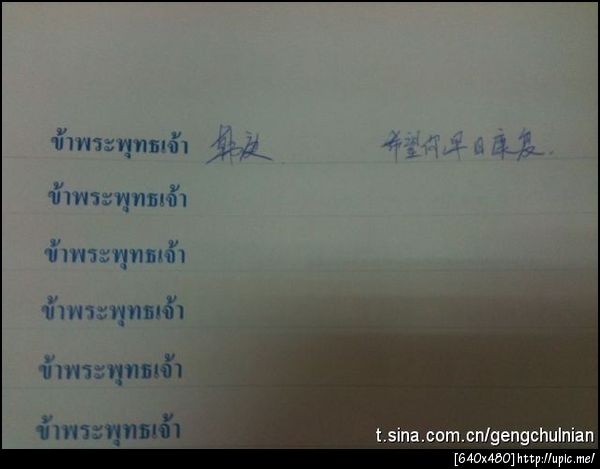 ข้าพระพุทธเจ้า 韩庚 希望你早日康复.
ข้าพระพุทธเจ้า
ข้าพระพุทธเจ้า
ข้าพระพุทธเจ้า
ข้าพระพุทธเจ้า
ข้าพระพุทธเจ้า
t.sina.com.cn/gengchulnian
[640x480]http://upic.me/